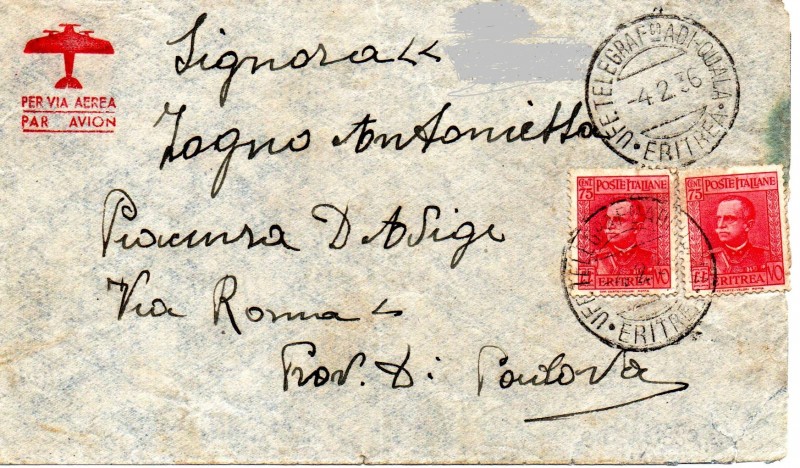 PER VIA AEREA
PAR AVION
Signora
UFF. TELEGRAFº ADI-QUALA
-4.2.36
ERITREA
Zogno Antonietta
CENT. 75 POSTE ITALIANE
ERITREA
CENT. 75 POSTE ITALIANE
ERITREA
Piacenza D'Adige
UFF. TELEGRAF
ERITREA
Via Roma
Prov. Di Padova